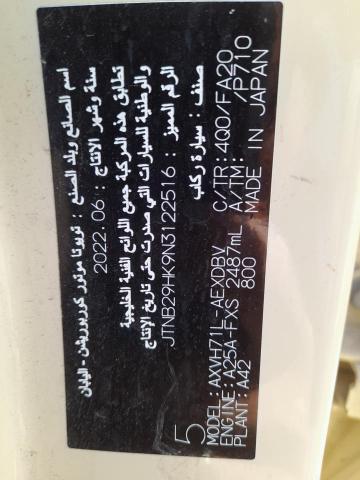 اسم الصانع وبلد الصنع : تويوتا موتور كوربوريشن - اليابان
سنة وشهر الانتاج : 2022.06
تطابق هذه المركبة جميع اللوائح الفنية الخليجية
والوطنية للسيارات التي صدرت حتى تاريخ الإنتاج
الرقم المميز : JTNB29HK9N3122516
صنف : سيارة ركاب
5
MODEL: AXVH71L-AEXDBV C/TR: 4Q0/FA20
ENGINE: A25A-FXS 2487mL A/TM: /P710
PLANT: A42 800 MADE IN JAPAN